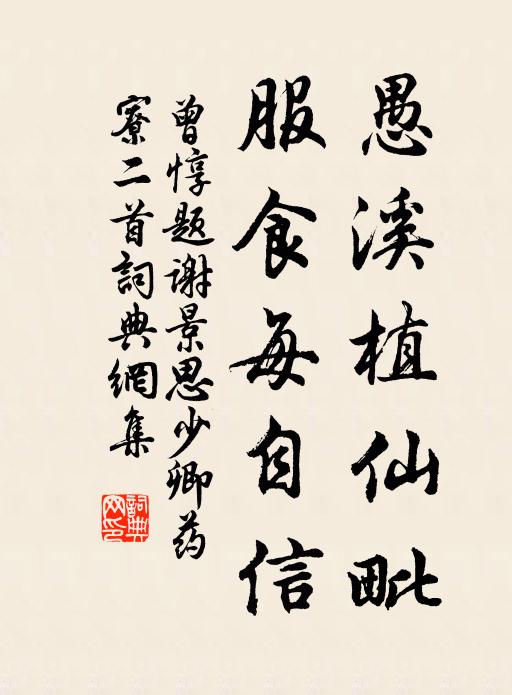 愚溪植仙毗
服食每自信
曾惇题謝景思少卿药
寮二首詞典網集
詞典網印